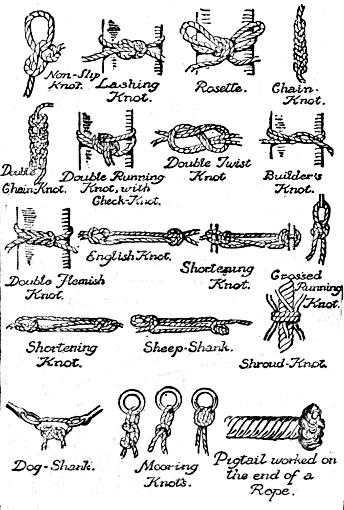 Non-Slip
Knot.
Lashing
Knot.
Rosette.
Chain-
Knot.
Double
Chain-Knot.
Double Running
Knot, with
Check-Knot.
Double Twist
Knot
Builder's
Knot.
Double Flemish
Knot.
English Knot.
Shortening
Knot.
Crossed
Running
Knot.
Shortening
Knot.
Sheep-Shank.
Shroud-Knot.
Dog-Shank.
Mooring
Knots.
Pigtail worked on
the end of a
Rope.